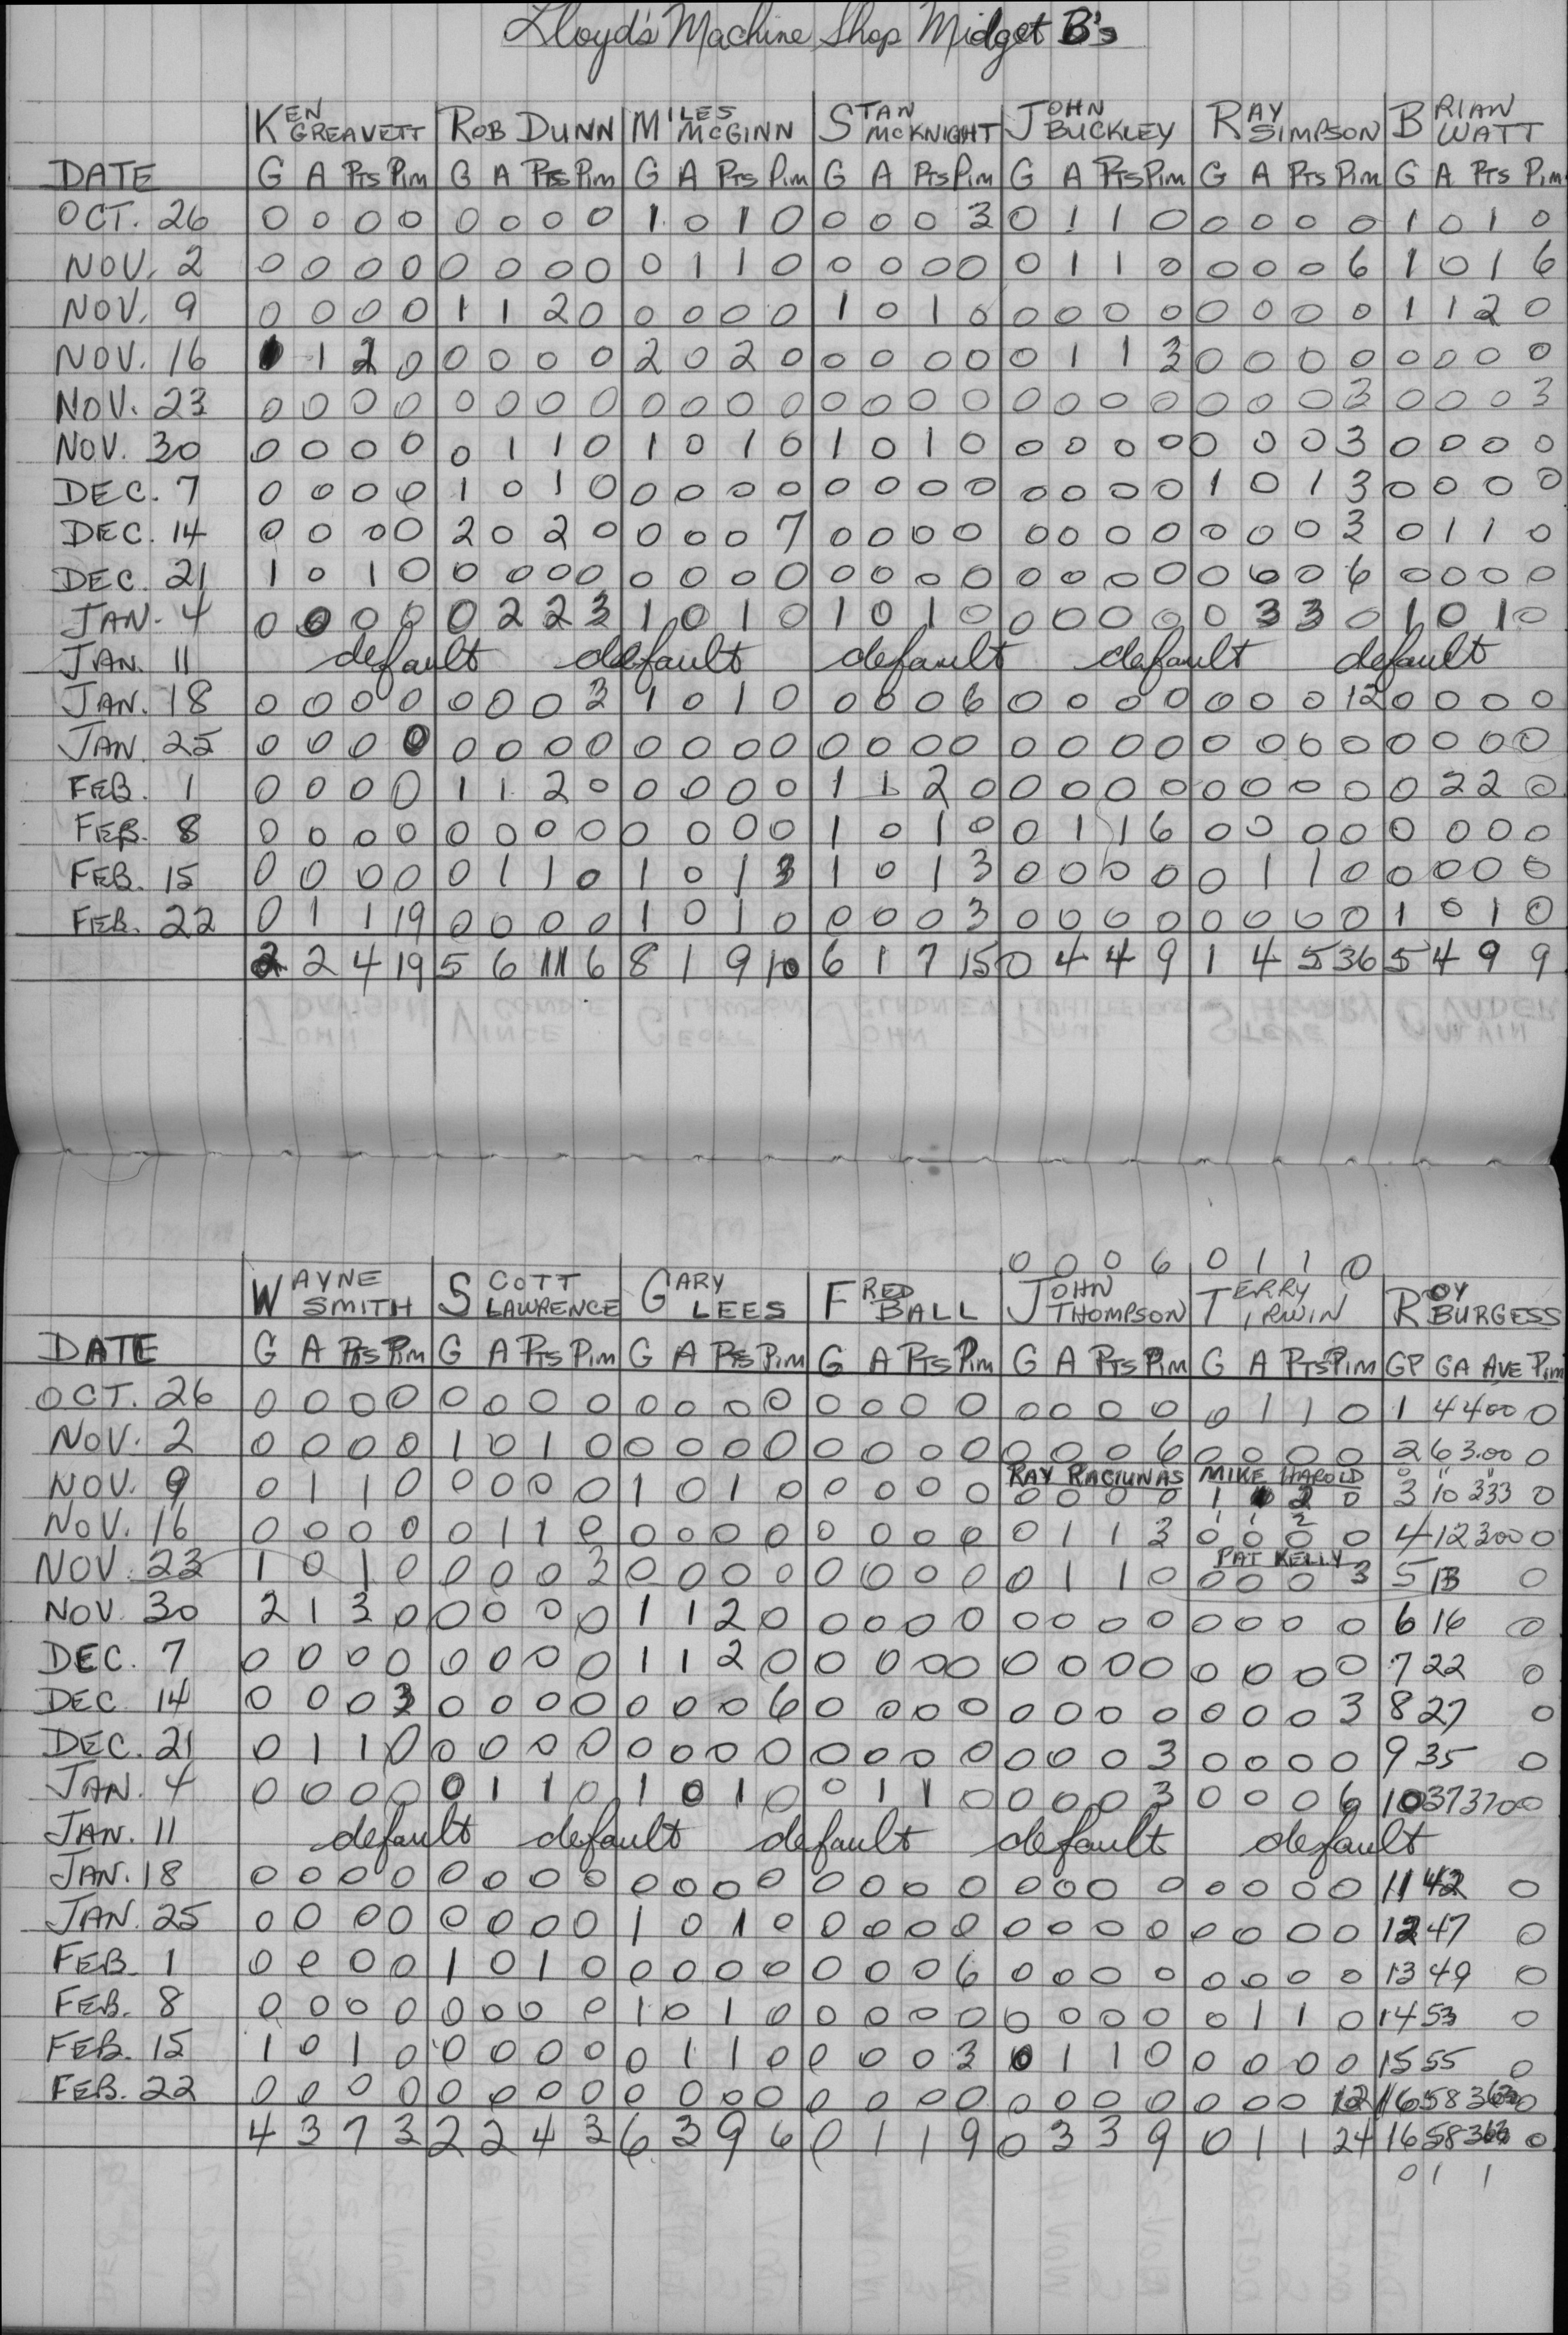 Lloyd's Machine Shop Midget B's
KEN GREAVETT ROB DUNN MILES MCGINN STAN MCKNIGHT JOHN BUCKLEY RAY SIMPSON BRIAN WATT
DATE G A PTS PIM G A PTS PIM G A PTS PIM G A PTS PIM G A PTS PIM G A PTS PIM G A PTS PIM
OCT. 26 0 0 0 0 0 0 0 0 1 0 1 0 0 0 0 3 0 1 1 0 0 0 0 0 1 0 1 0
NOV. 2 0 0 0 0 0 0 0 0 0 1 1 0 0 0 0 0 0 1 1 0 0 0 0 6 1 0 1 6
NOV. 9 0 0 0 0 1 1 2 0 0 0 0 0 1 0 1 0 0 0 0 0 0 0 0 0 1 1 2 0
NOV. 16 1 1 2 0 0 0 0 0 2 0 2 0 0 0 0 0 0 1 1 3 0 0 0 0 0 0 0 0
NOV. 23 0 0 0 0 0 0 0 0 0 0 0 0 0 0 0 0 0 0 0 0 0 0 0 3 0 0 0 3
NOV. 30 0 0 0 0 0 1 1 0 1 0 1 0 1 0 1 0 0 0 0 0 0 0 0 3 0 0 0 0
DEC. 7 0 0 0 0 1 0 1 0 0 0 0 0 0 0 0 0 0 0 0 0 1 0 1 3 0 0 0 0
DEC. 14 0 0 0 0 2 0 2 0 0 0 0 7 0 0 0 0 0 0 0 0 0 0 0 3 0 1 1 0
DEC. 21 1 0 1 0 0 0 0 0 0 0 0 0 0 0 0 0 0 0 0 0 0 0 0 6 0 0 0 0
JAN. 4 0 0 0 0 0 2 2 3 1 0 1 0 1 0 1 0 0 0 0 0 0 3 3 0 1 0 1 0
JAN. 11 default default default default default
JAN. 18 0 0 0 0 0 0 0 3 1 0 1 0 0 0 0 6 0 0 0 0 0 0 0 12 0 0 0 0
JAN. 25 0 0 0 0 0 0 0 0 0 0 0 0 0 0 0 0 0 0 0 0 0 0 0 0 0 0 0 0
FEB. 1 0 0 0 0 1 1 2 0 0 0 0 0 1 1 2 0 0 0 0 0 0 0 0 0 0 2 2 0
FEB. 8 0 0 0 0 0 0 0 0 0 0 0 0 1 0 1 0 0 1 1 6 0 0 0 0 0 0 0 0
FEB. 15 0 0 0 0 0 1 1 0 1 0 1 3 1 0 1 3 0 0 0 0 0 1 1 0 0 0 0 0
FEB. 22 0 1 1 19 0 0 0 0 1 0 1 0 0 0 0 3 0 0 0 0 0 0 0 0 1 0 1 0
2 2 4 19 5 6 11 6 8 1 9 10 6 1 7 15 0 4 4 9 1 4 5 36 5 4 9 9
0 0 0 6 0 1 1 0
WAYNE SMITH SCOTT LAWRENCE GARY LEES FRED BALL JOHN THOMPSON TERRY IRWIN ROY BURGESS
DATE G A PTS PIM G A PTS PIM G A PTS PIM G A PTS PIM G A PTS PIM G A PTS PIM GP GA AVE PIM
OCT. 26 0 0 0 0 0 0 0 0 0 0 0 0 0 0 0 0 0 0 0 0 0 1 1 0 1 4 4.00 0
NOV. 2 0 0 0 0 1 0 1 0 0 0 0 0 0 0 0 0 0 0 0 6 0 0 0 0 2 6 3.00 0
RAY RACIUNAS MIKE HAROLD
NOV. 9 0 1 1 0 0 0 0 0 1 0 1 0 0 0 0 0 0 0 0 0 1 1 2 0 3 10 333 0
1 1 2
NOV. 16 0 0 0 0 0 1 1 0 0 0 0 0 0 0 0 0 0 1 1 3 0 0 0 0 4 12 300 0
PAT KELLY
NOV. 23 1 0 1 0 0 0 0 3 0 0 0 0 0 0 0 0 0 1 1 0 0 0 0 3 5 13 0
NOV. 30 2 1 3 0 0 0 0 0 1 1 2 0 0 0 0 0 0 0 0 0 0 0 0 0 6 16 0
DEC. 7 0 0 0 0 0 0 0 0 1 1 2 0 0 0 0 0 0 0 0 0 0 0 0 0 7 22 0
DEC. 14 0 0 0 3 0 0 0 0 0 0 0 6 0 0 0 0 0 0 0 0 0 0 0 3 8 27 0
DEC. 21 0 1 1 0 0 0 0 0 0 0 0 0 0 0 0 0 0 0 0 3 0 0 0 0 9 35 0
JAN. 4 0 0 0 0 0 1 1 0 1 0 1 0 0 1 1 0 0 0 0 3 0 0 0 6 10 37 370 0
JAN. 11 default default default default default
JAN. 18 0 0 0 0 0 0 0 0 0 0 0 0 0 0 0 0 0 0 0 0 0 0 0 0 11 42 0
JAN. 25 0 0 0 0 0 0 0 0 1 0 1 0 0 0 0 0 0 0 0 0 0 0 0 0 12 47 0
FEB. 1 0 0 0 0 1 0 1 0 0 0 0 0 0 0 0 6 0 0 0 0 0 0 0 0 13 49 0
FEB. 8 0 0 0 0 0 0 0 0 1 0 1 0 0 0 0 0 0 0 0 0 0 1 1 0 14 53 0
FEB. 15 1 0 1 0 0 0 0 0 0 1 1 0 0 0 0 3 0 1 1 0 0 0 0 0 15 55 0
FEB. 22 0 0 0 0 0 0 0 0 0 0 0 0 0 0 0 0 0 0 0 0 0 0 0 12 16 58 363 0
4 3 7 3 2 2 4 3 6 3 9 6 0 1 1 9 0 3 3 9 0 1 1 24 16 58 363 0
0 1 1